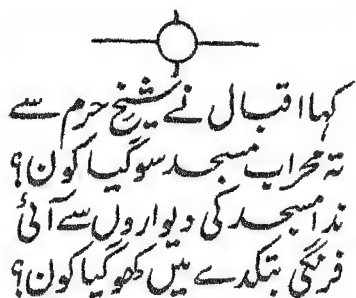 کہا اقبال نے شیخ حرم سے
تہ محراب مسجد سو گیا کون؟
ندا مسجد کی دیواروں سے آئی
فرنگی بتکدے میں کھو گیا کون؟